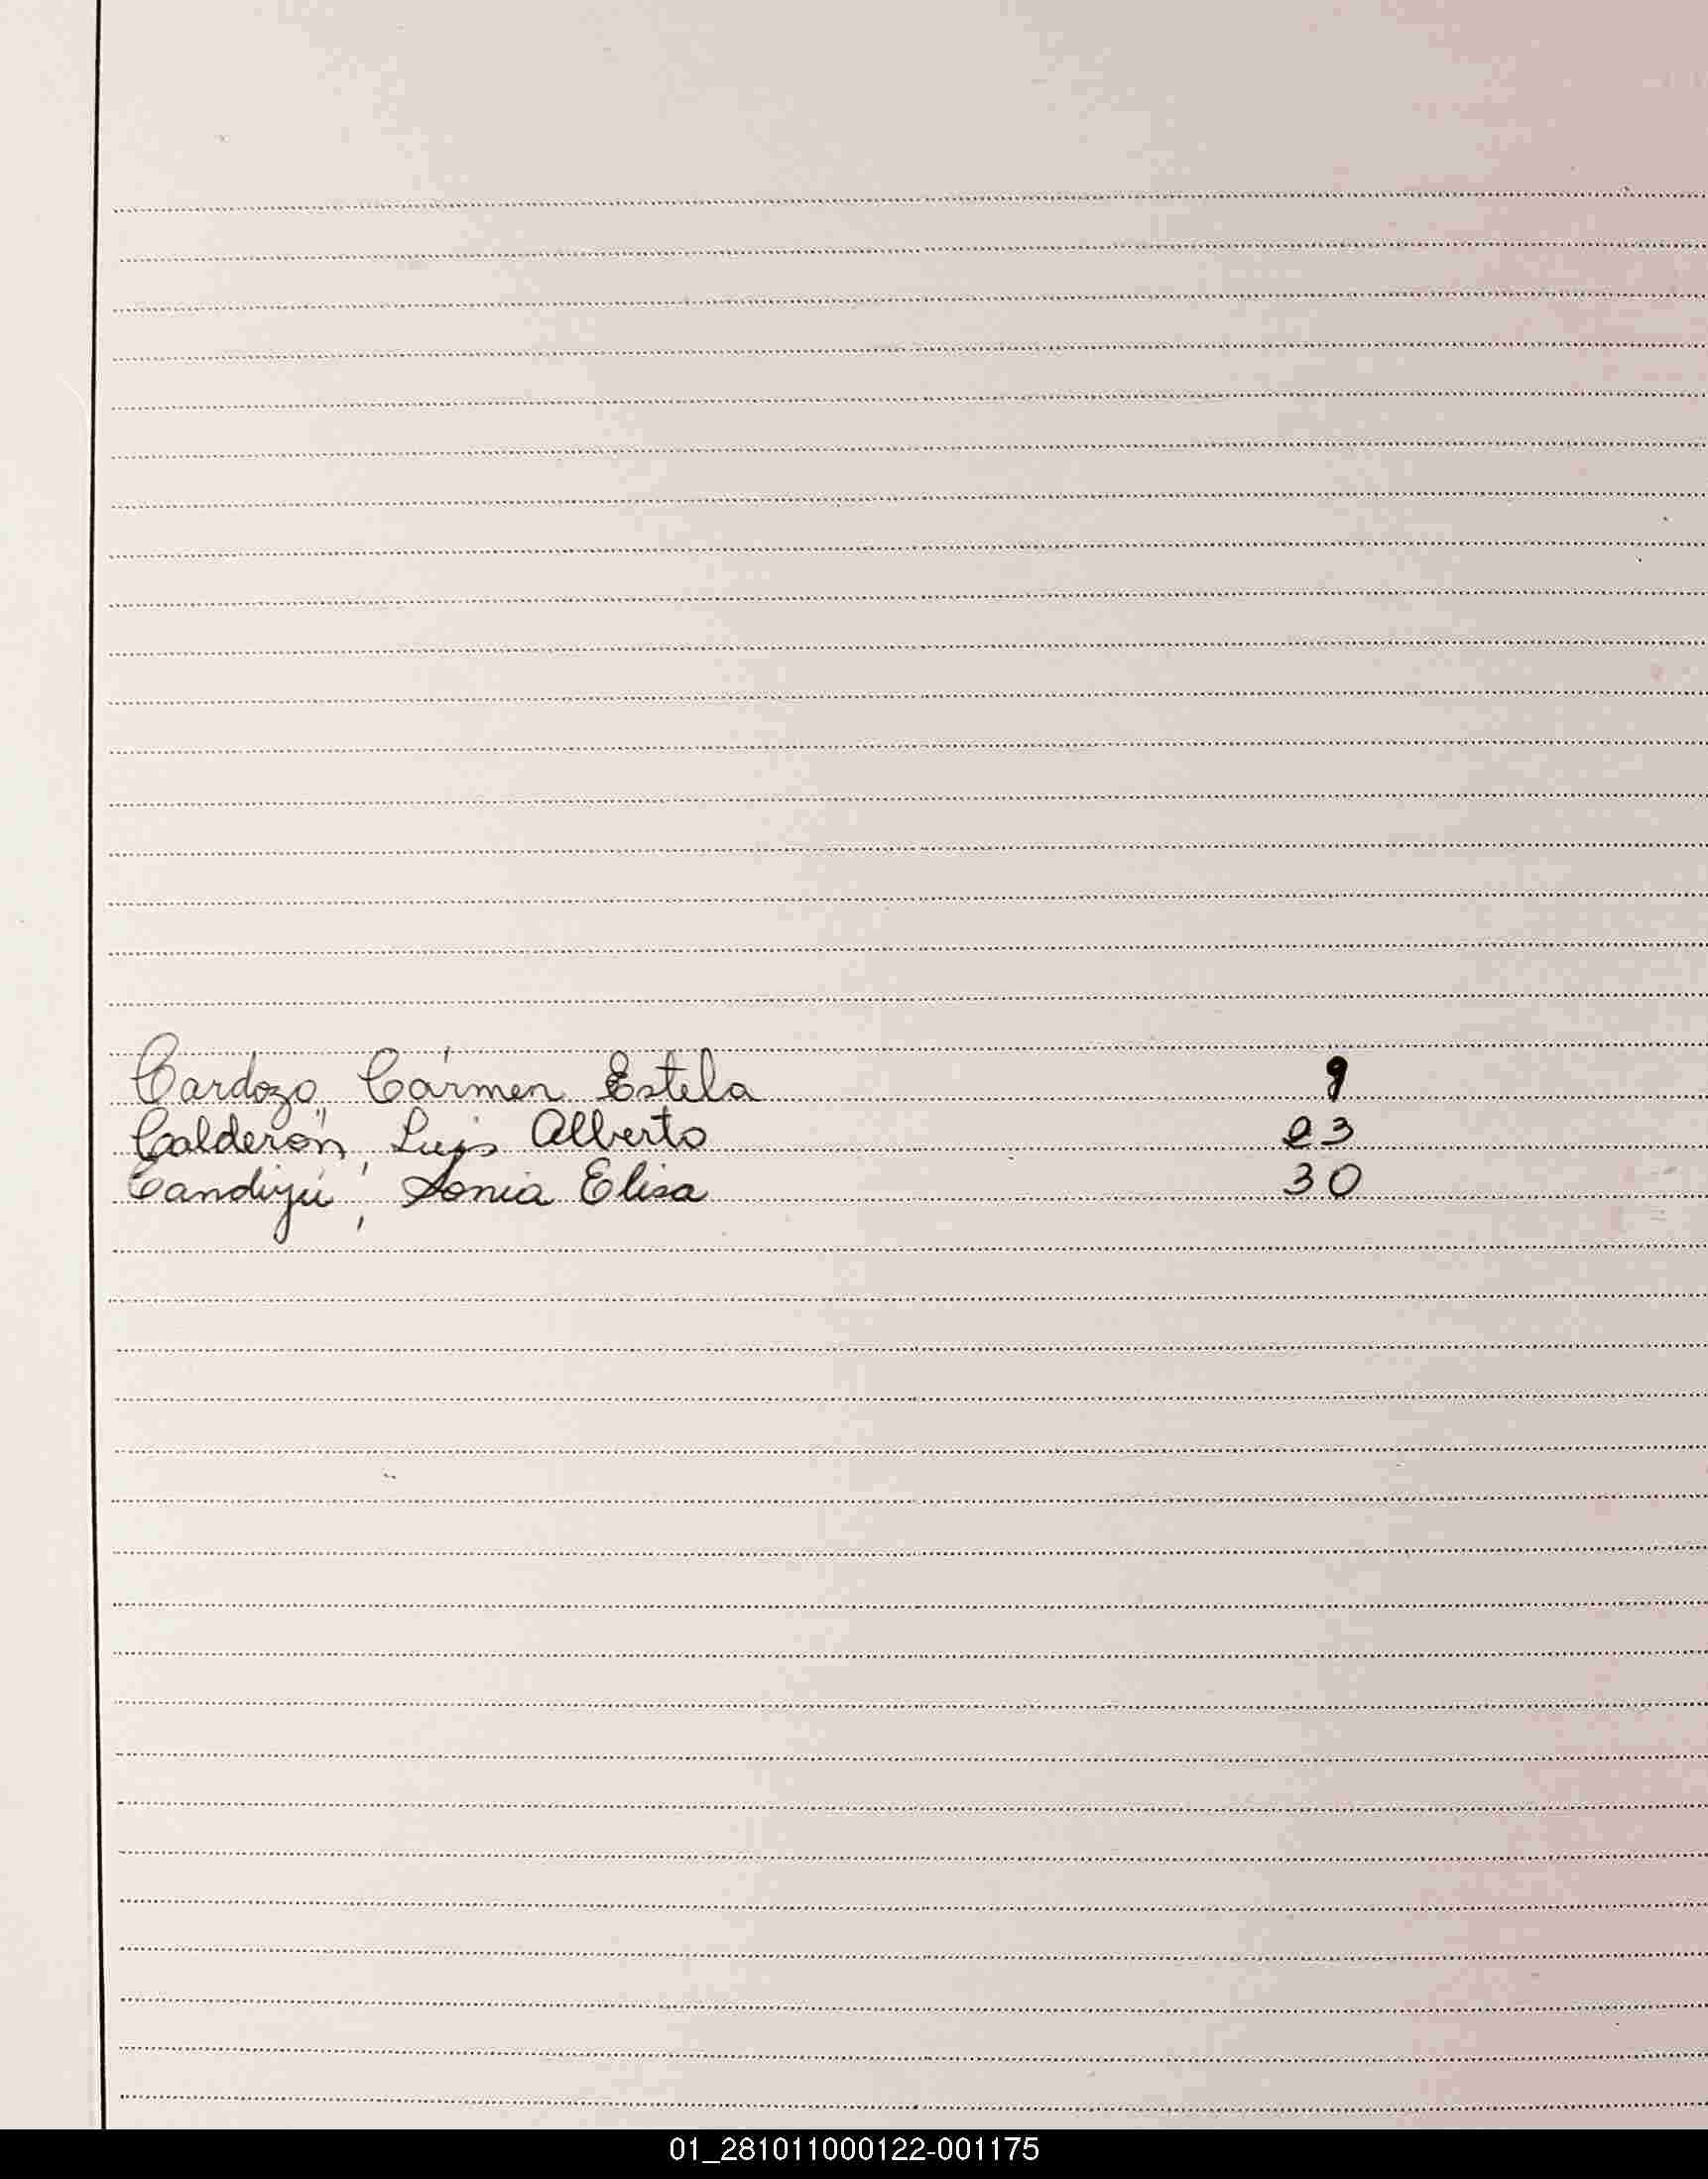 Cardozo, Cármen Estela 9
Calderón, Luis Alberto 23
Candiyú, Sonia Elisa 30
01_281011000122-001175